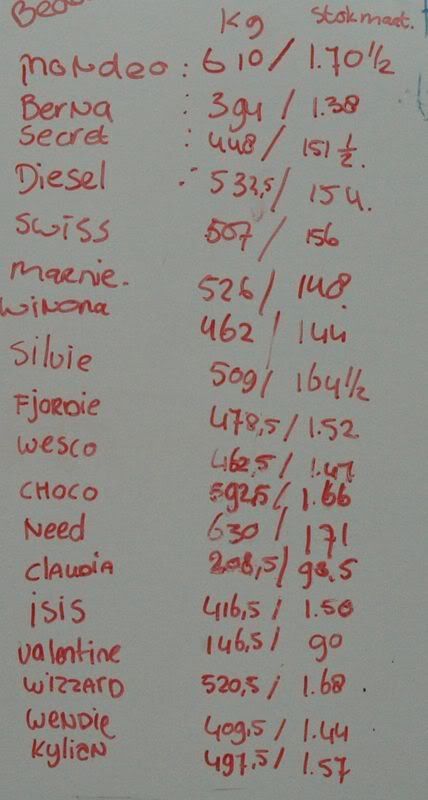 Kg Stokmaat.
Mondeo : 610 / 1.70 1/2
Berna : 394 / 1.38
Secret : 448 / 151 1/2.
Diesel : 532,5 / 154.
SWISS 507 / 156
Marnie. 526 / 148
Winona 462 / 144
Silvie 509 / 164 1/2
Fjordie 478,5 / 1.52
Wesco 462,5 / 1.47
CHOCO 592,5 / 1.66
Need 630 / 171
CLAUDIA 208,5 / 98.5
isis 416,5 / 1.50
Valentine 146,5 / 90
WIZZARD 520,5 / 1.68.
WENDIE 409,5 / 1.44
Kylian 497,5 / 1.57